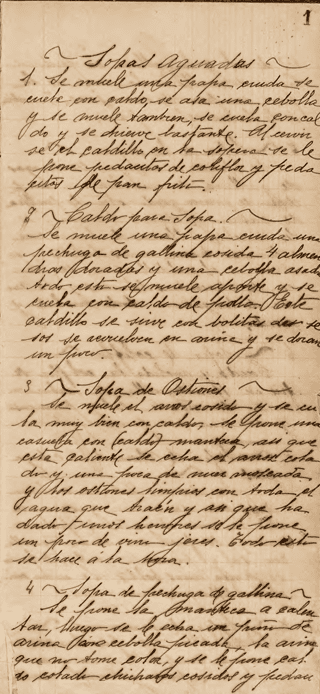 1
Sopas Aguadas
1. Se muele una papa cruda se
cuela con caldo, se asa una cebolla
y se muele tambien, se cuela con cal
do y se hierve bastante. Al servir
se el caldillo en la sopera se le
pone pedacitos de coliflor y peda
citos de pan frito.
2 Caldo para Sopa.
Se muele una papa cruda una
pechuga de gallina cosida 4 almen
dras doradas y una cebolla asada
todo esto se muele aparte y se
cuela con caldo de polla. Este
caldillo se sirve con bolitas de se
sos se revuelven en arina y se doran
un poco.
3 Sopa de Ostiones
Se muele el arros cosido y se cu
la muy bien con caldo. Se pone una
casuela con manteca, asi que
esta caliente se echa el arros cola
do y una poca de nues moscada
y los ostiones limpios con toda el
agua que traen y asi que ha
dado unos herbores se le pone
un poco de vino jeres. Todo esto
se hace á la hora.
4 Sopa de pechuga de gallina.
Se pone la manteca a calen
tar, luego se le echa un puño de
arina con cebolla picada, la arina
que no tome color, y se le pone cal
do colado chicharos cosidos y pedasi